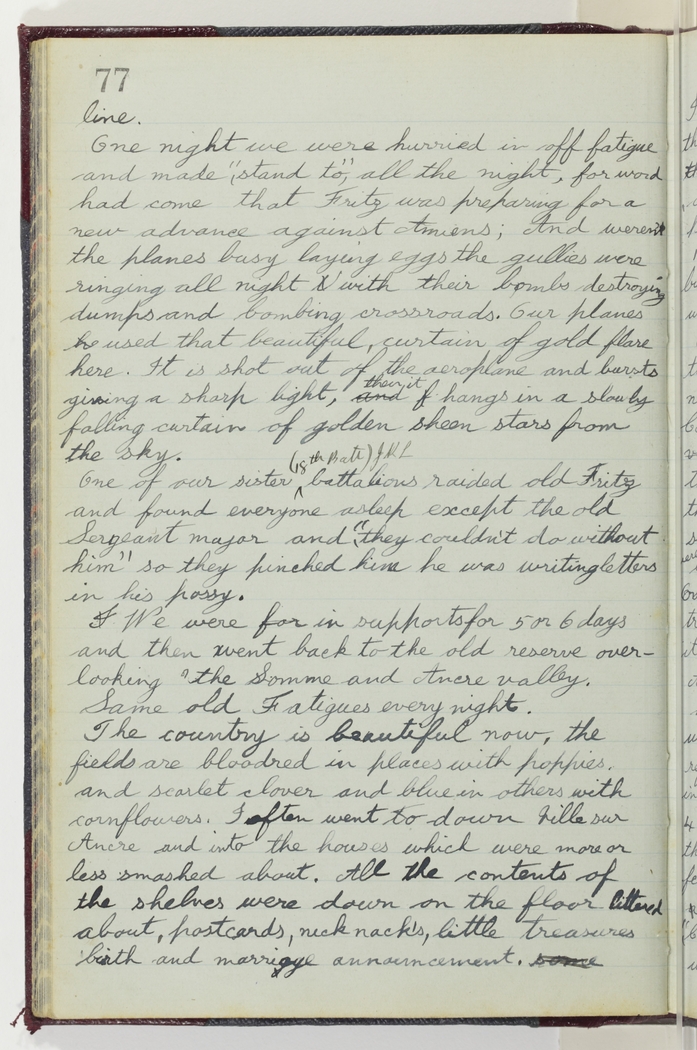 77
line.
One night we were hurried in off fatigue
and made "stand to", all the night, for word
had come that Fritz was preparing for a
new advance against Amiens; And weren't
the planes busy laying eggs the gullies were
ringing all night & with their bombs destroying
dumps and bombing crossroads. Our planes
he used that beautiful, curtain of gold flare
here. It is shot out of the aeroplane and bursts
giving a sharp light, and then it hangs in a slowly
falling curtain of golden sheen stars from
the sky.
One of our sister (18th Batt) JKL battalions raided old Fritz
and found everyone asleep except the old
Sergeant major and "they couldn't do without
him" so they pinched him he was writing letters
in his possy.
I We were for in supports for 5 or 6 days
and then went back to the old reserve over-
looking the Somme and Ancre valley.
Same old Fatigues every night.
The country is beautiful now, the
fields are bloodred in places with poppies.
and scarlet clover and blue in others with
cornflowers. I often went to down Ville sur
Ancre and into the houses which were more or
less smashed about. All the contents of
the shelves were down on the floor littered
about, postcards, nick nack's, little treasures
birth and marrigye announcement. some